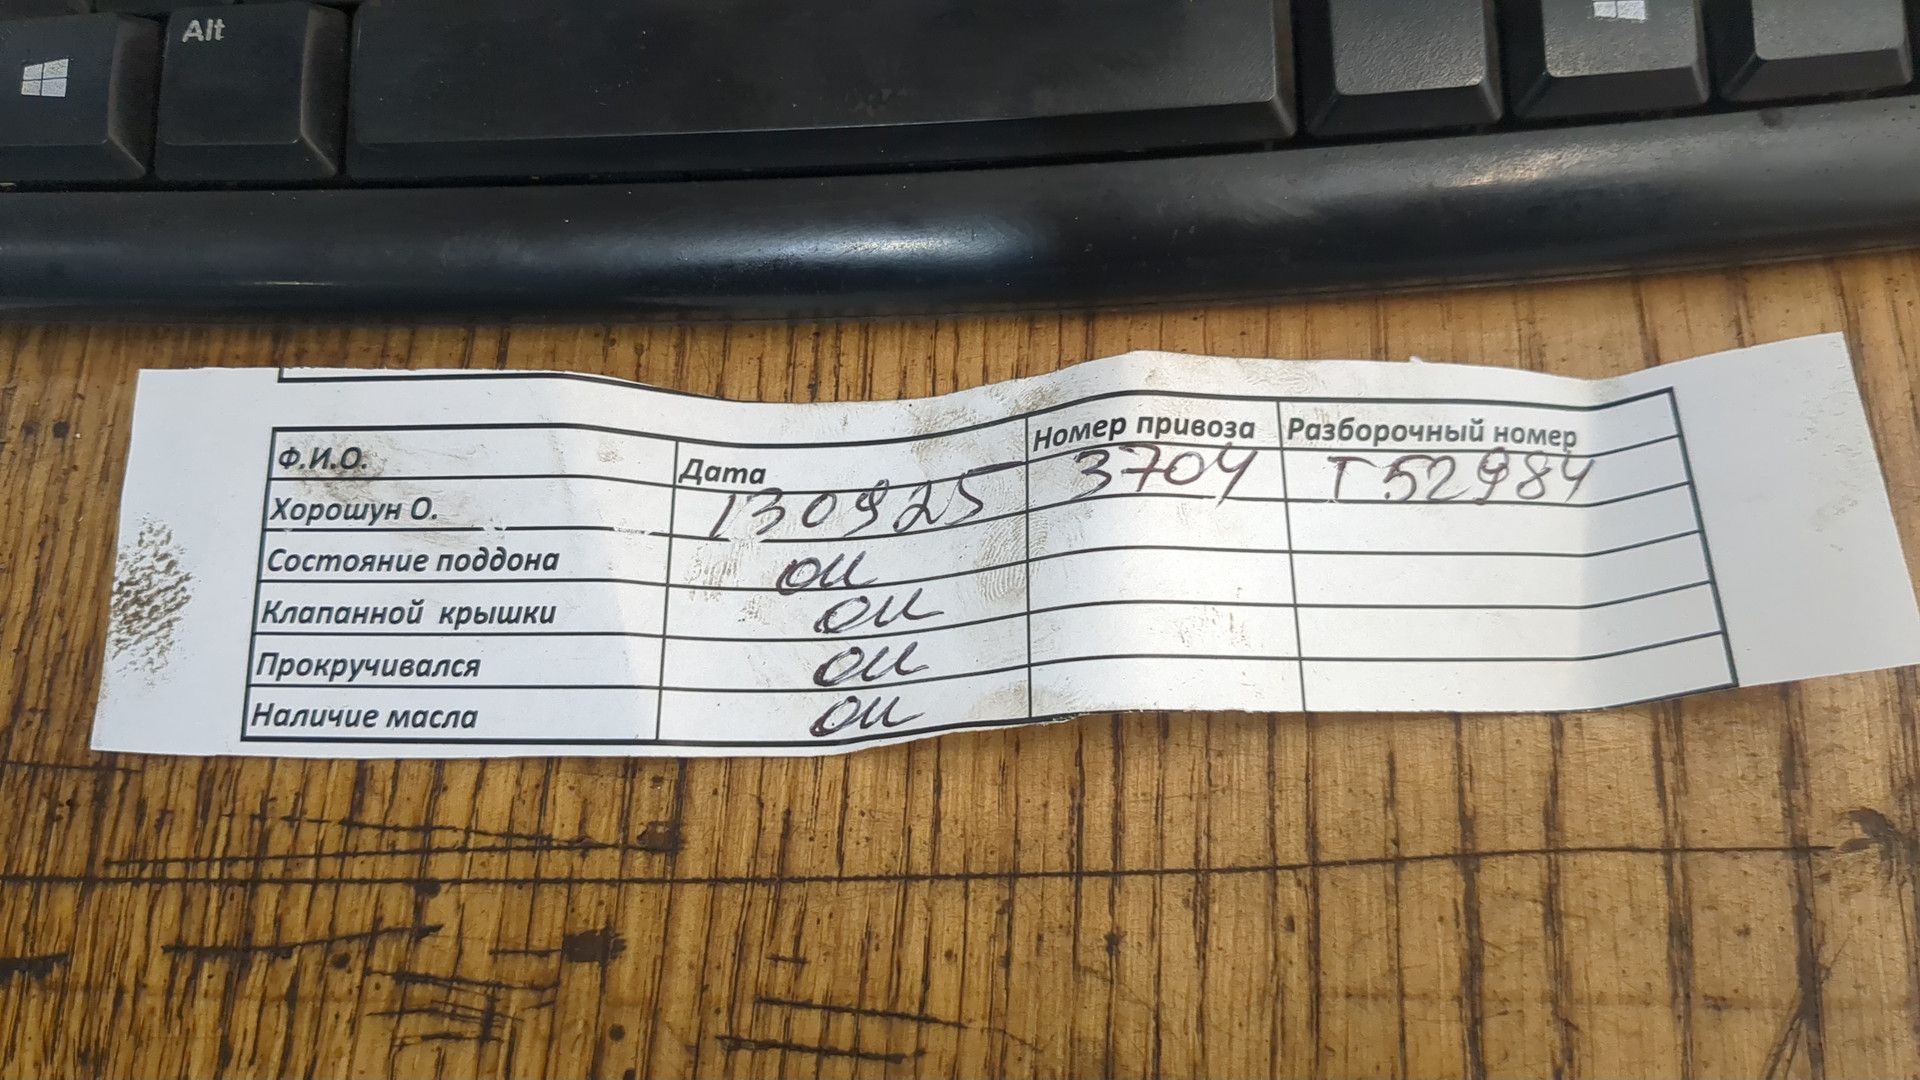 Alt
Ф.И.О. Дата Номер привоза Разборочный номер
Хорошун О. 130925 3704 Т52984
Состояние поддона ок
Клапанной крышки ок
Прокручивался ок
Наличие масла ок